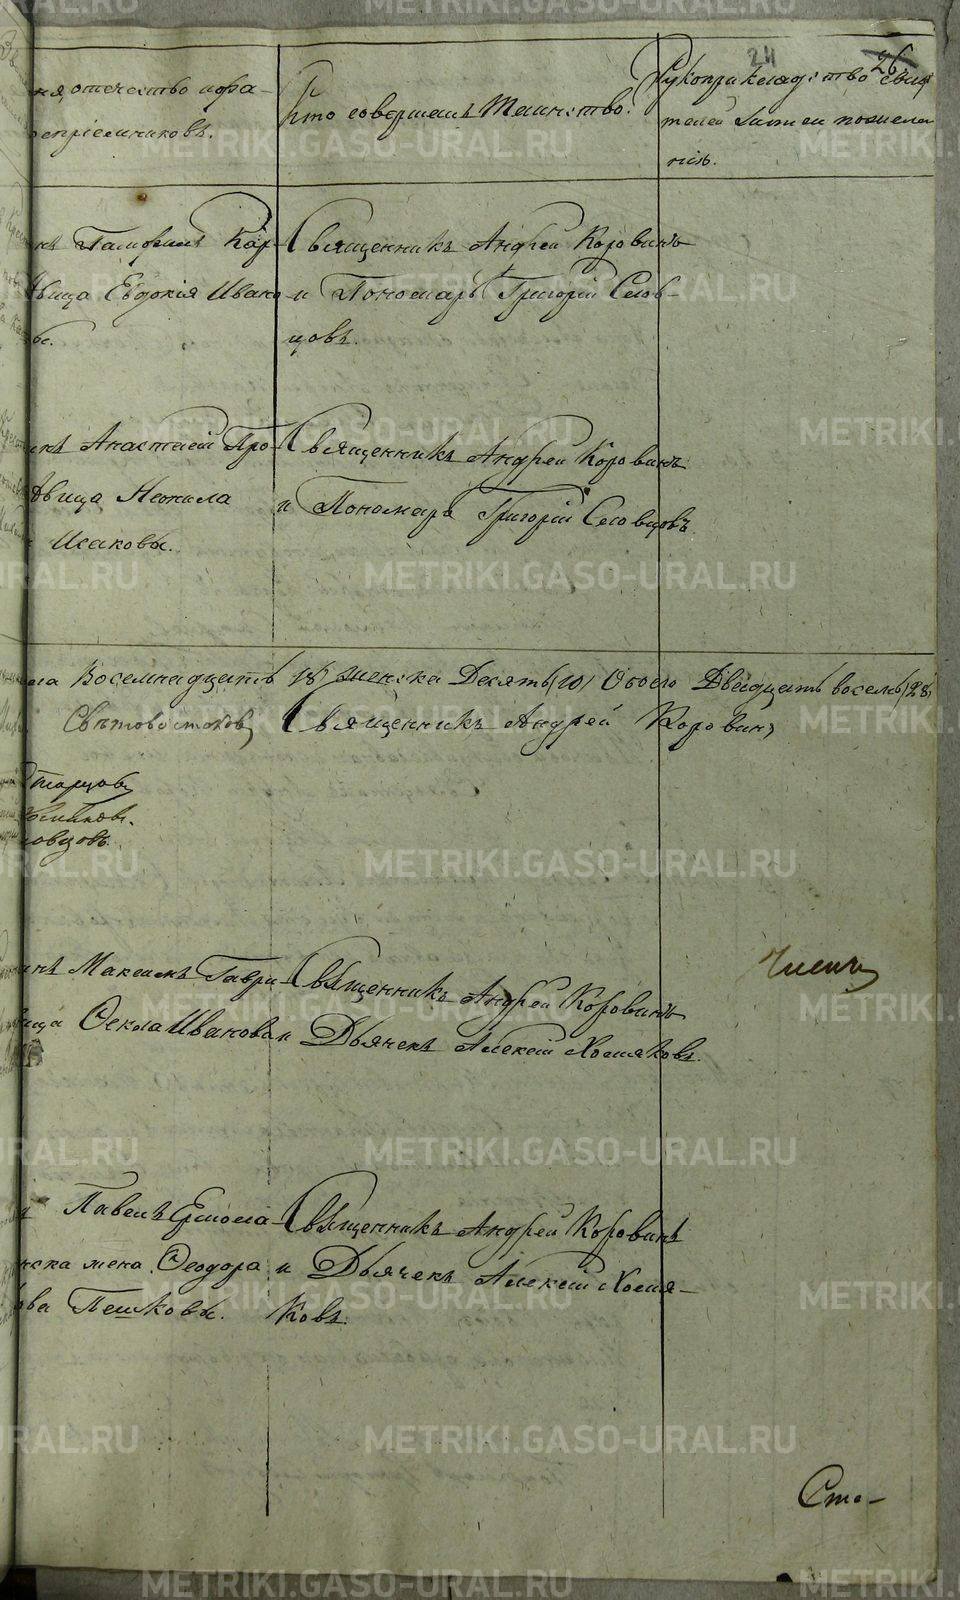 24 26
отечество и фа-
сепріемниковъ.
Кто совершалъ Таинство.
Рукоприкладство свидѣ
телей записи по желан
нію.
Кор-
вица Евдокія Ивано
Священникъ Андрей Коровинъ
и Пономарь Григорій Словъ-
цовъ.
Анастасій Про-
вица Неонила
Исаковы.
Священникъ Андрей Коровинъ
и Пономарь Григорій Словцовъ.
Восемнадцать 18, женска Десять (10) Обоего Двадцать восемь (28)
Священникъ Андрей Коровинъ
Старцовъ
ловцовъ.
Максимъ Гаври-
вица Ѳекла Иванова
Священникъ Андрей Коровинъ
и Дьячекъ Алексій Хомяковъ.
Павелъ Ермола-
жена Ѳеодора
Пешковы.
Священникъ Андрей Коровинъ
и Дьячекъ Алексій Хомя-
ковъ.
METRIKI.GASO-URAL.RU